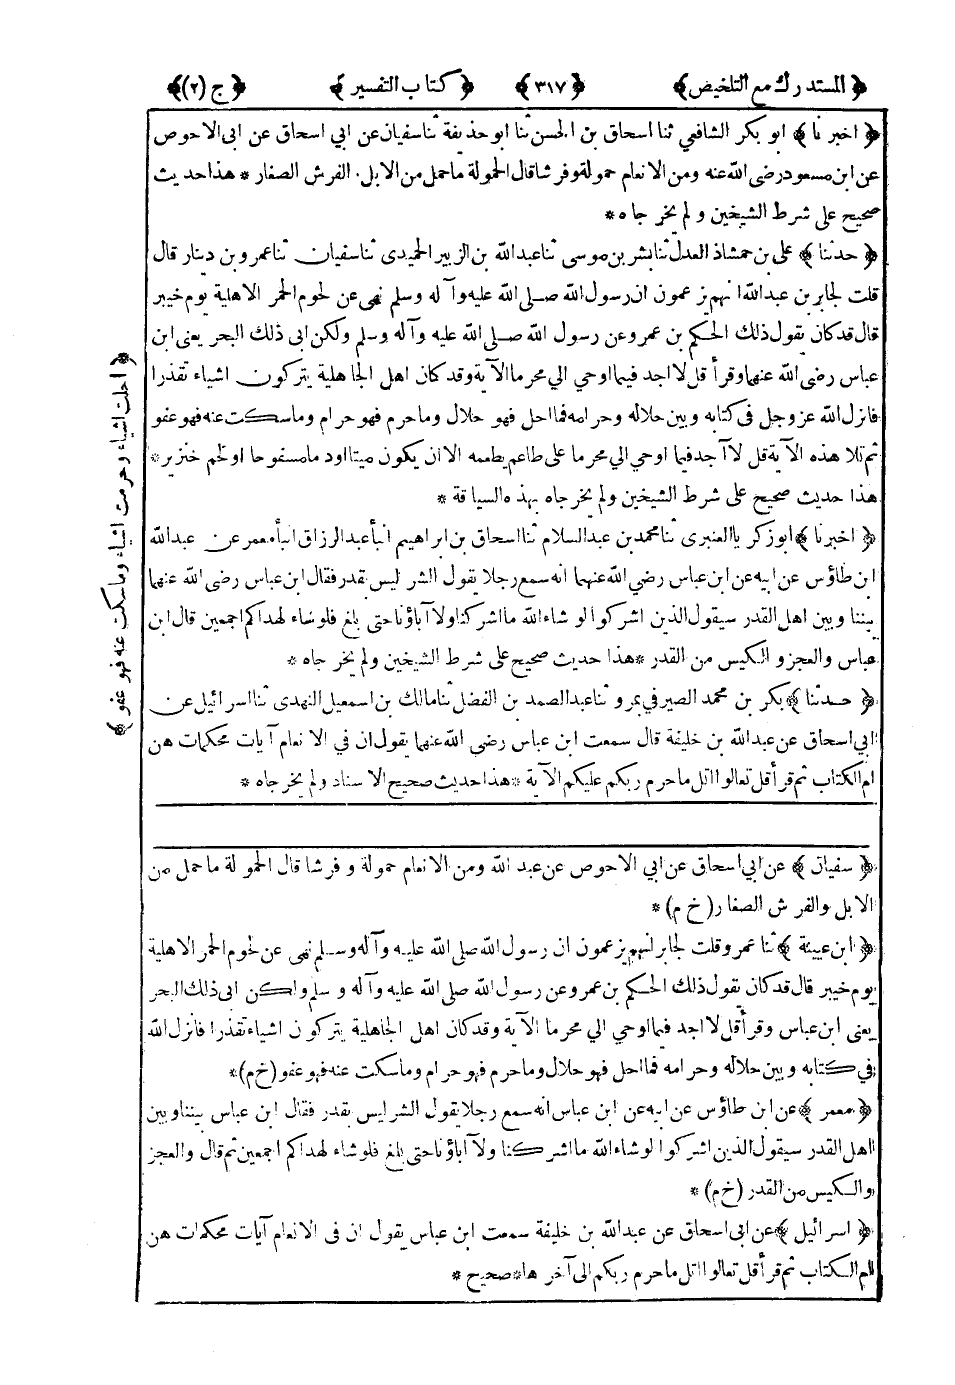 ﴿ المستدرك مع التلخيص ﴾ ﴿ ٣١٧ ﴾ ﴿ كتاب التفسير ﴾ ﴿ ج (٢) ﴾
﴿ اخبرنا ﴾ ابو بكر الشافعي ثنا اسحاق بن الحسن ثنا ابو حذيفة ثنا سفيان عن ابي اسحاق عن ابى الاحوص
عن ابن مسعود رضى الله عنه ومن الانعام حمولة وفرشا قال الحمولة ما حمل من الابل. الفرش الصغار * هذا حديث
صحيح على شرط الشيخين ولم يخرجاه *
﴿ حدثنا ﴾ على بن حمشاذ العدل ثنا بشر بن موسى ثنا عبد الله بن الزبير الحميدى ثنا سفيان ثنا عمرو بن دينار قال
قلت لجابر بن عبد الله انهم يزعمون ان رسول الله صلى الله عليه وآله وسلم نهى عن لحوم الحمر الاهلية يوم خيبر
قال قد كان يقول ذلك الحكم بن عمرو عن رسول الله صلى الله عليه وآله وسلم ولكن ابى ذلك البحر يعنى ابن
عباس رضى الله عنهما وقرأ قل لا اجد فيما اوحي الي محرما الآية وقد كان اهل الجاهلية يتركون اشياء تقذرا
فانزل الله عز وجل فى كتابه وبين حلاله وحرامه فما احل فهو حلال وما حرم فهو حرام وما سكت عنه فهو عفو
ثم تلا هذه الآية قل لا آجد فيما اوحي الي محرما على طاعم يطعمه الا ان يكون ميتا او دما مسفوحا او لحم خنزير *
هذا حديث صحيح على شرط الشيخين ولم يخرجاه بهذه السياقة *
﴿ اخبرنا ﴾ ابو زكريا العنبرى ثنا محمد بن عبد السلام ثنا اسحاق بن ابراهيم انبأ عبد الرزاق انبأ معمر عن عبد الله
ابن طاؤس عن ابيه عن ابن عباس رضي الله عنهما انه سمع رجلا يقول الشر ليس بقدر فقال ابن عباس رضى الله عنهما
بيننا وبين اهل القدر سيقول الذين اشركوا لو شاء الله ما اشركنا ولا آباؤنا حتى بلغ فلو شاء لهداكم اجمعين قال ابن
عباس والعجز والكيس من القدر * هذا حديث صحيح على شرط الشيخين ولم يخرجاه *
﴿ حدثنا ﴾ بكر بن محمد الصيرفي بمرو ثنا عبد الصمد بن الفضل ثنا مالك بن اسمعيل النهدى ثنا اسرائيل عن
ابي اسحاق عن عبد الله بن خليفة قال سمعت ابن عباس رضى الله عنهما يقول ان في الانعام آيات محكمات هن
ام الكتاب ثم قرأ قل تعالوا اتل ما حرم ربكم عليكم الآية * هذا حديث صحيح الاسناد ولم يخرجاه *
﴿ احلت اشياء وحرمت اشياء وما سكت عنه فهو عفو ﴾
﴿ سفيان ﴾ عن ابي اسحاق عن ابي الاحوص عن عبد الله ومن الانعام حمولة وفرشا قال الحمولة ما حمل من
الابل والفرش الصغار (خ م) *
﴿ ابن عيينة ﴾ ثنا عمرو قلت لجابر انهم يزعمون ان رسول الله صلى الله عليه وآله وسلم نهى عن لحوم الحمر الاهلية
يوم خيبر قال قد كان يقول ذلك الحكم بن عمرو عن رسول الله صلى الله عليه وآله وسلم ولكن ابى ذلك البحر
يعنى ابن عباس وقرأ قل لا اجد فيما اوحي الي محرما الآية وقد كان اهل الجاهلية يتركون اشياء تقذرا فانزل الله
في كتابه وبين حلاله وحرامه فما احل فهو حلال وما حرم فهو حرام وما سكت عنه فهو عفو (خ م) *
﴿ معمر ﴾ عن ابن طاؤس عن ابيه عن ابن عباس انه سمع رجلا يقول الشر ليس بقدر فقال ابن عباس بيننا وبين
اهل القدر سيقول الذين اشركوا لو شاء الله ما اشركنا ولا آباؤنا حتى بلغ فلو شاء لهداكم اجمعين ثم قال والعجز
والكيس من القدر (خ م) *
﴿ اسرائيل ﴾ عن ابى اسحاق عن عبد الله بن خليفة سمعت ابن عباس يقول ان فى الانعام آيات محكمات هن
ام الكتاب ثم قرأ قل تعالوا اتل ما حرم ربكم الى آخرها * صحيح *